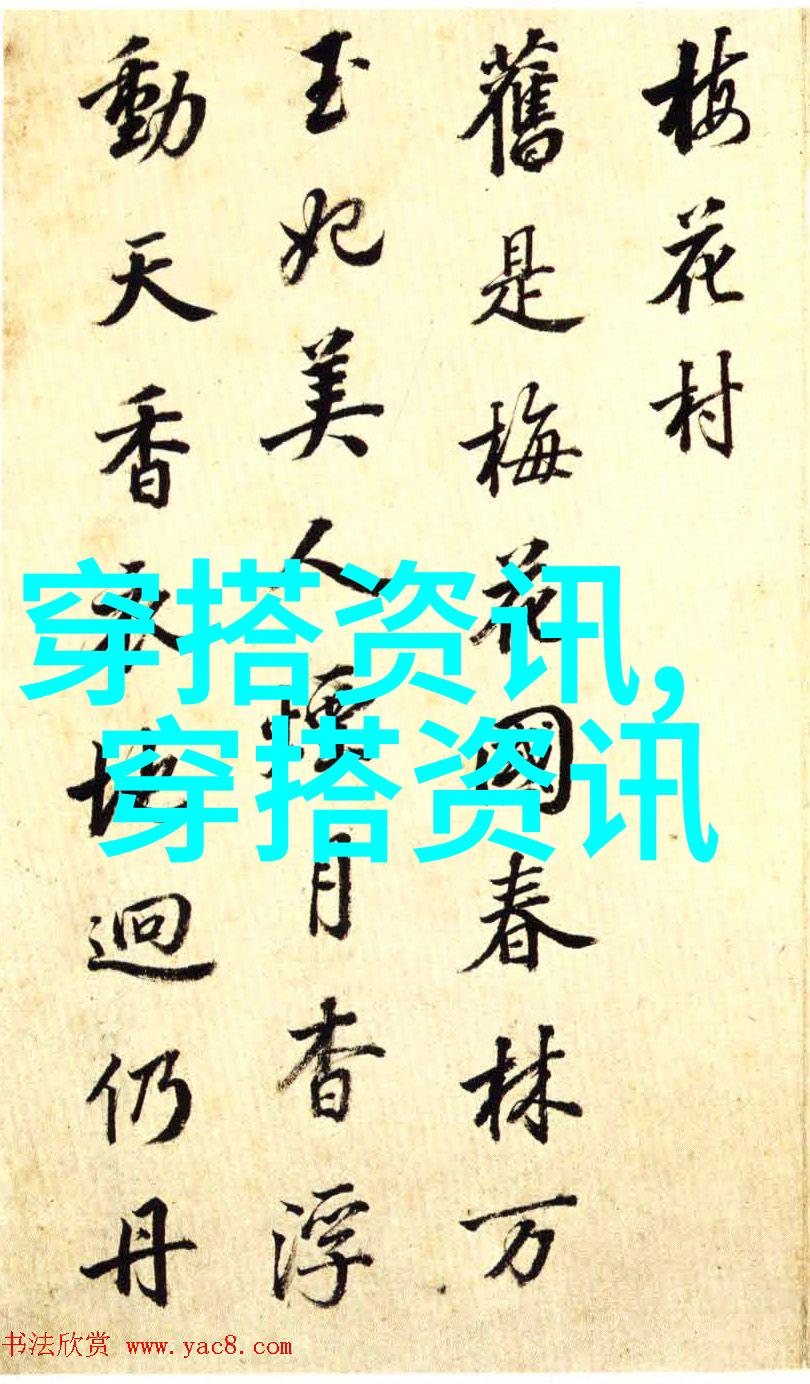 梅花村
舊是梅花國春林万
玉妃美人月杳浮
動天香地迥仍丹
穿搭资讯,
穿搭资讯
书法欣赏 www.yac8.com